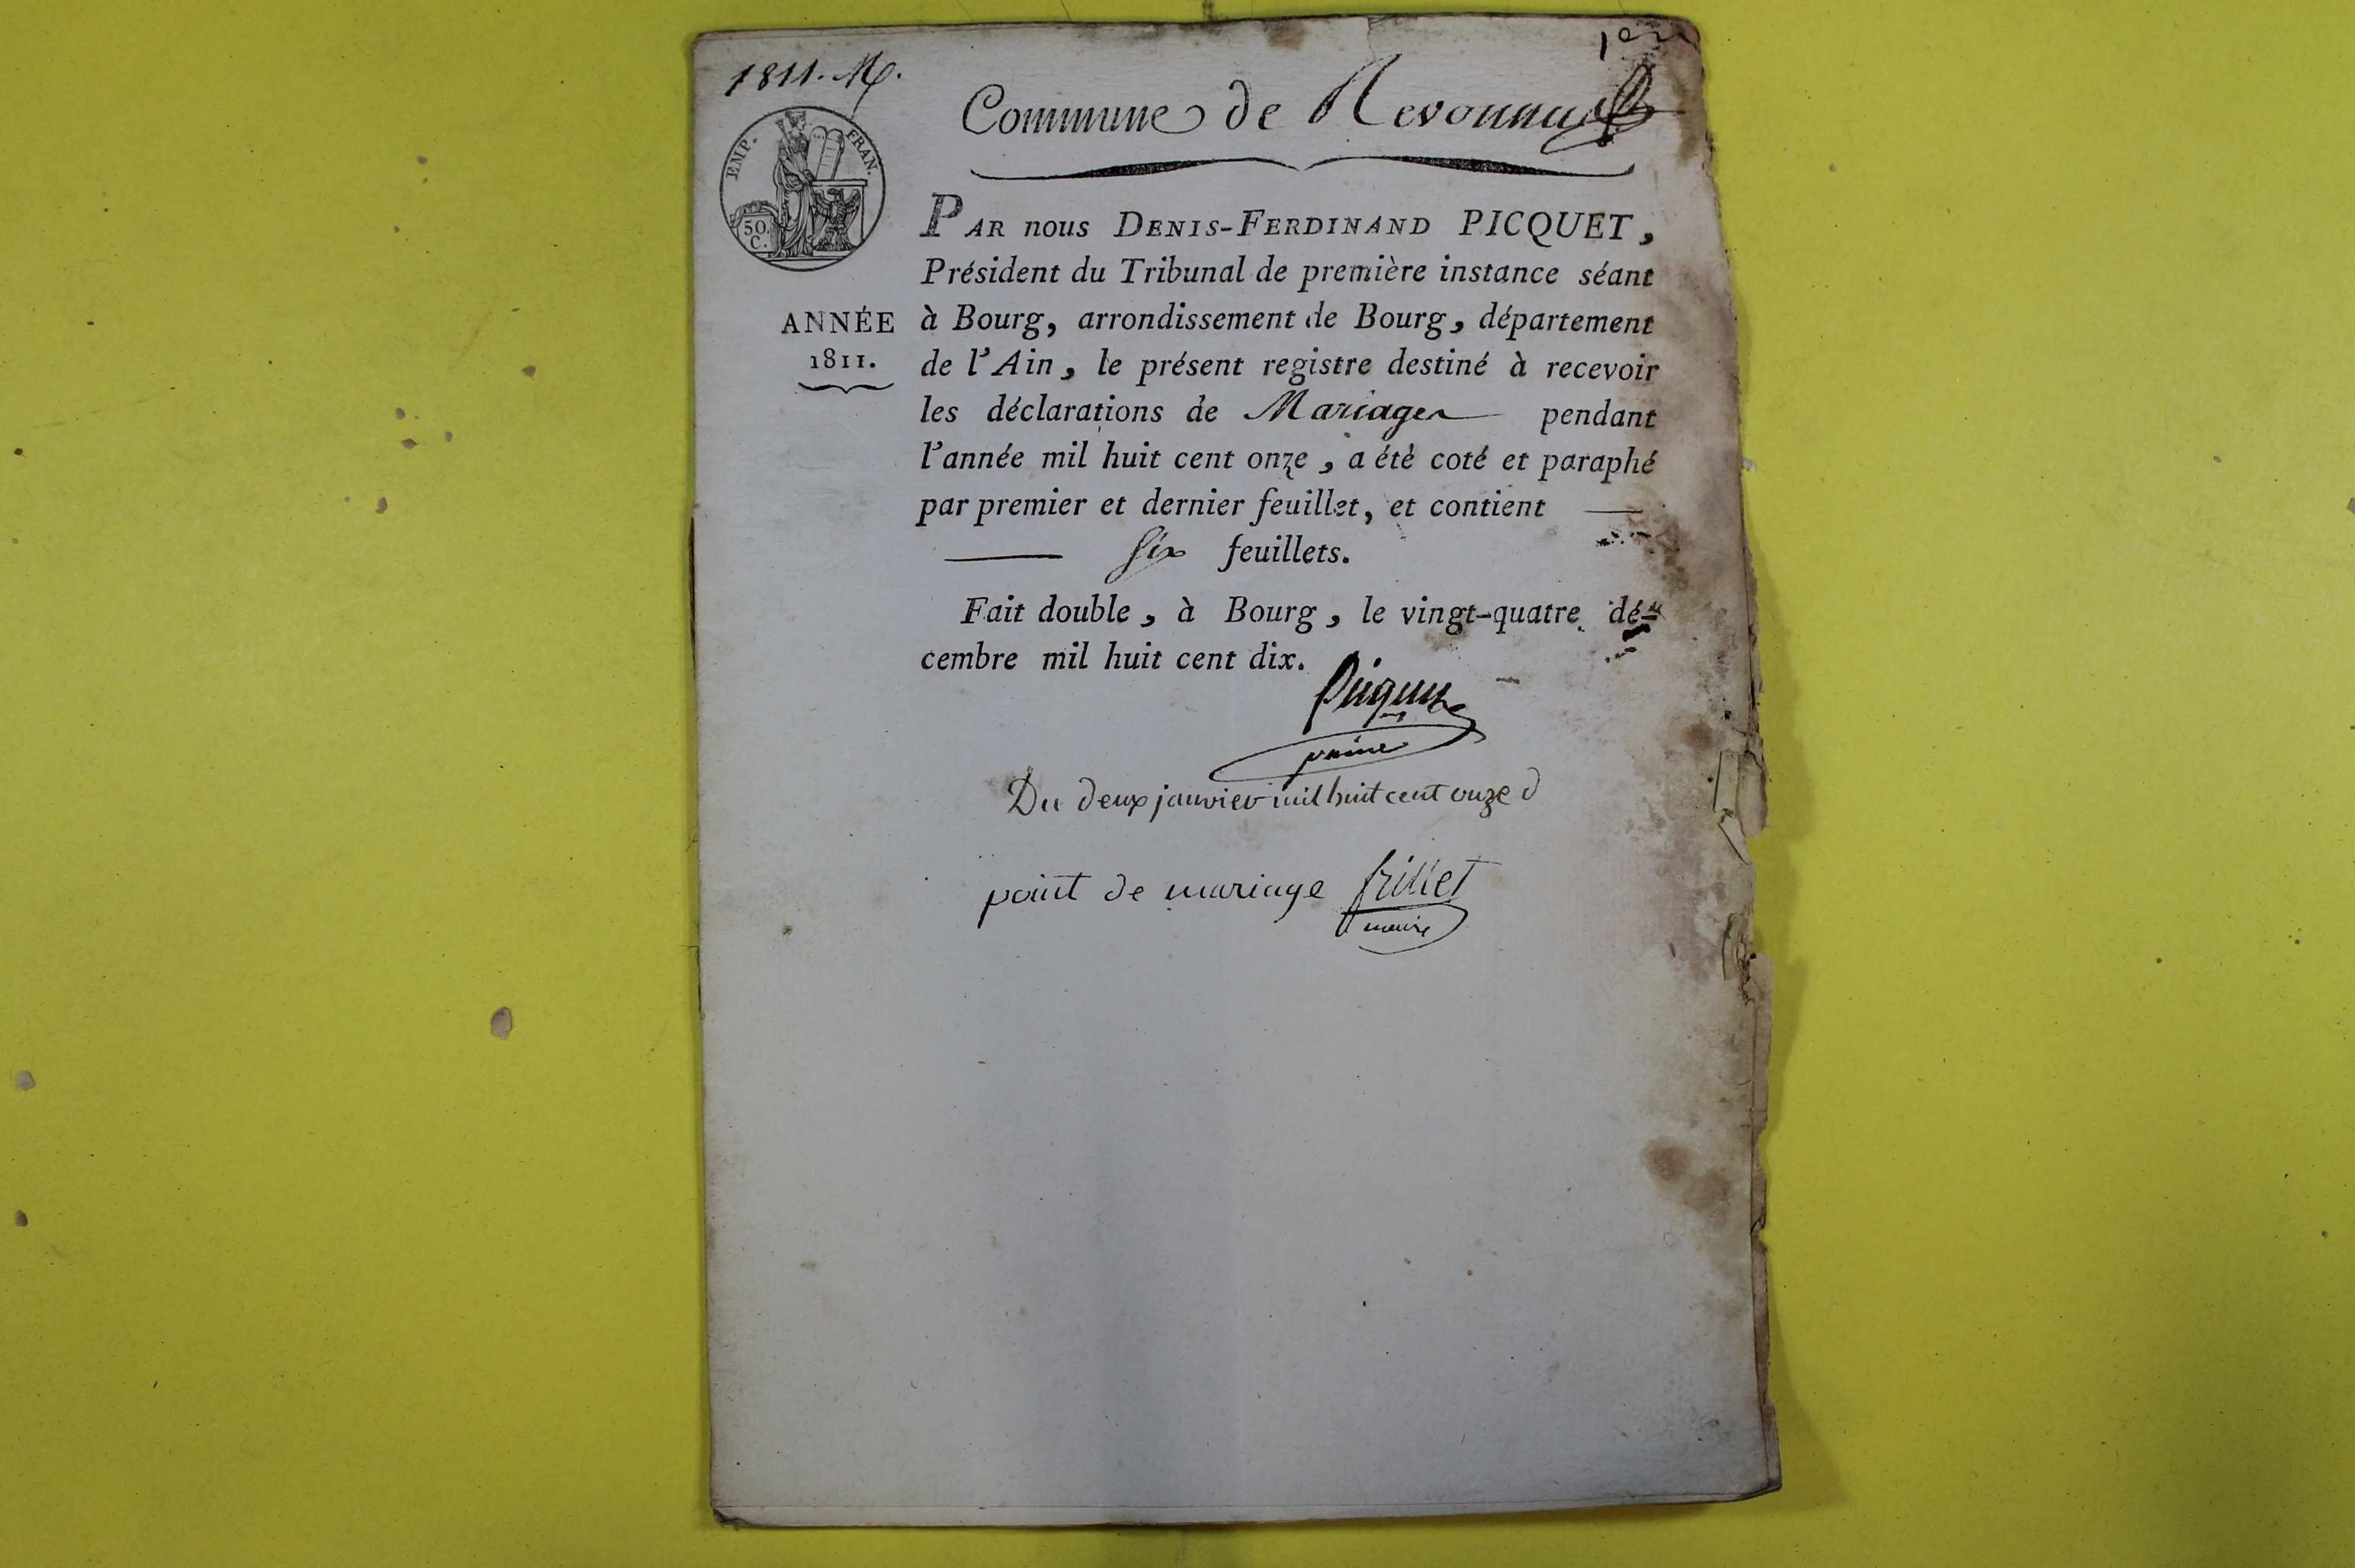 1811. M.
1er
Commune de Revonnas
EMP. FRAN.
50.
C.
PAR nous DENIS-FERDINAND PICQUET,
Président du Tribunal de première instance séant
ANNÉE
1811.
à Bourg, arrondissement de Bourg, département
de l'Ain, le présent registre destiné à recevoir
les déclarations de Mariages pendant
l'année mil huit cent onze, a été coté et paraphé
par premier et dernier feuillet, et contient
six feuillets.
Fait double, à Bourg, le vingt-quatre dé-
cembre mil huit cent dix.
Picquet
Du deux janvier mil huit cent onze
point de mariage frillet
maire